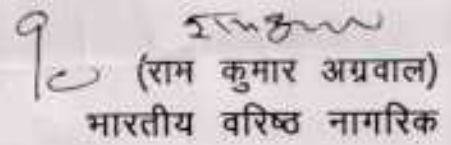 (राम कुमार अग्रवाल)
भारतीय वरिष्ठ नागरिक